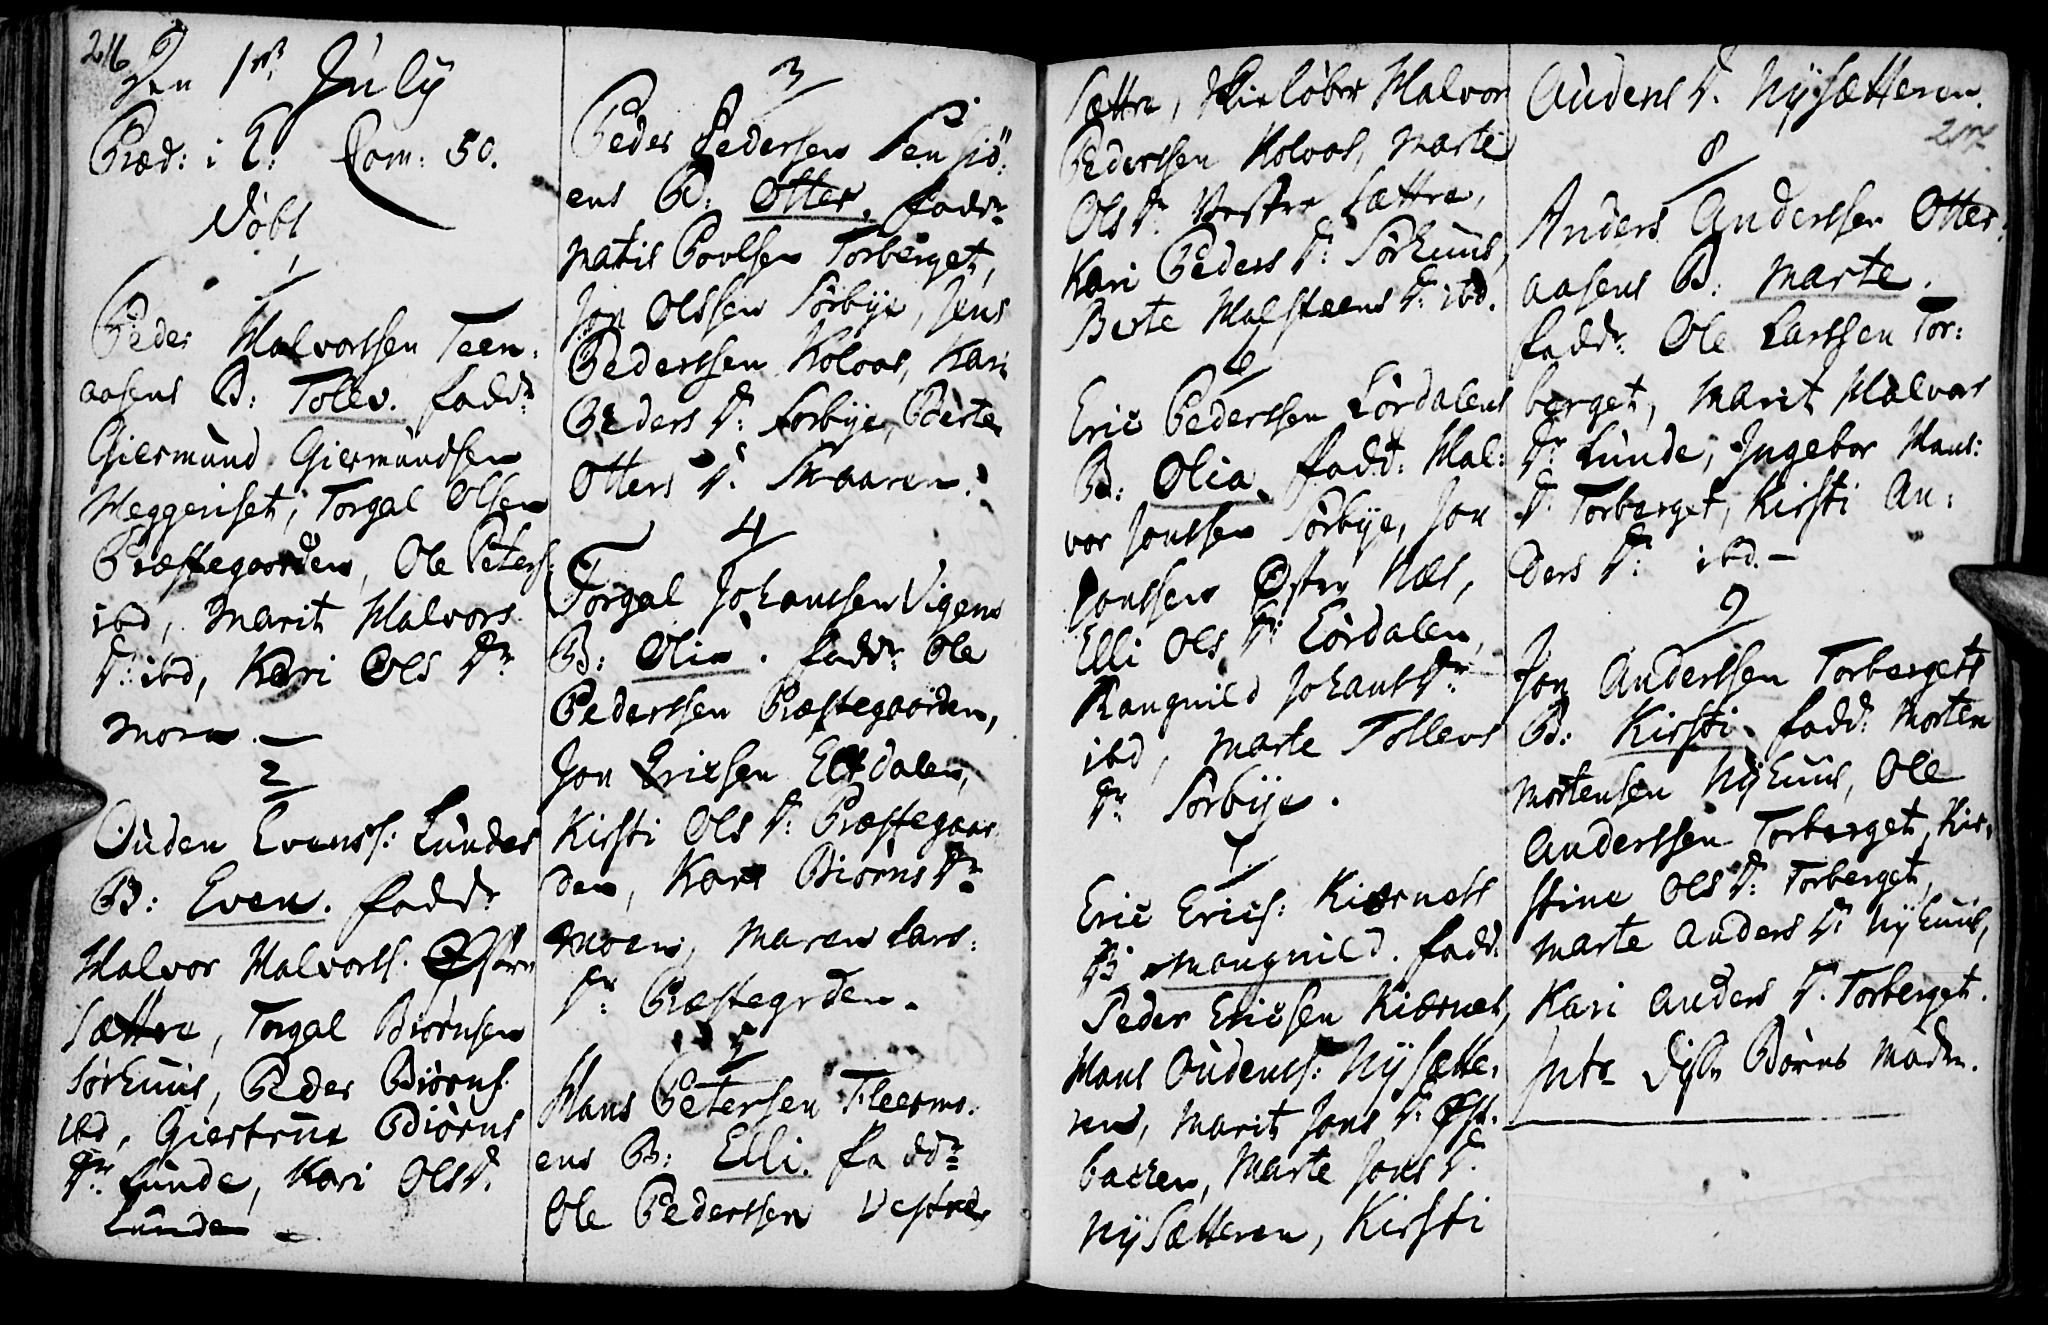 216
Den 1ste July
Præd: i E: Com: 50.
Döbt
1
Peder Halvorssen Teen:
aasens B: Tolev. fadd:
Giermund Giermundsen
Heggeriset, Torgal Olsen
Præstegaarden, Ole Peters:
ibd, Marit Halvors
Dr: ibd, Kari Ols Dr
Moren. —
2
Ouden Evenss: Lundes
B: Even. fadd:
Halvor Halvorss. Östre
Sættre, Torgal Biörnsen
Sörhuus, Peder Biörns:
ibd, Giertrue Biörns
Dr: Lunde, Kari Ols D.
Lunde —
3
Peder Pedersen Sensjö:
ens B: Otter. fadd:
Matis Povlsen Torberget,
Jon Olssen Sörbye, Jens
Pederssen Koloos, Kari
Peders D: Sorbye, Berte
Otters D: Skaaren.
4
Torgal Johanssen Vigens
B: Olia. fadd: Ole
Pederssen Præstegaarden,
Jon Ericsen Eltdalen,
Kirsti Ols D: Præstegaar
den, Kari Biörns Dr
Moen, Maren Lars:
Dr: Præstegrden.
5
Hans Petersen Fleermo:
ens B: Elli. fadd:
Ole Pederssen Vestre
Sættre, Skielöber Halvor
Pederssen Koloos, Marte
Ols Dr Vestre Sættre,
Kari Peders D: Sörhuus,
Berte Halsteens D: ibd.
6
Eric Pederssen Lördalens
B: Olia. fadd: Hal:
vor Jonssen Sörbye, Jon
Jonssen Östre Næs,
Elli Ols D: Lördalen,
Rangnild Johans Dr
ibd, Marte Tollevs
Dr Sörbye.
7
Eric Erics: Kiærnets
B: Mangnild. fadd:
Peder Ericsen Kiærnet,
Hans Oudenss: Nysætte:
ren, Marit Jons D: Öst:
backen, Marte Jons D:
Nysætteren, Kirsti
Audens D. Nysætteren.
217
8
Anders Anderssen Otter:
aasens B: Marte.
fadd: Ole Larssen Tor:
berget, Marit Halvors
Dr Lunde, Ingebor Hans:
D: Torberget, Kirsti An:
ders D: ibd. —
9
Jon Anderssen Torbergets
B: Kirsti. fadd: Morten
Mortensen Nyhuus, Ole
Anderssen Torberget, Kir:
stine Ols D: Torberget,
Marte Anders D: Nyhuus,
Kari Anders D: Torberget.
Intr Börns Mödre.